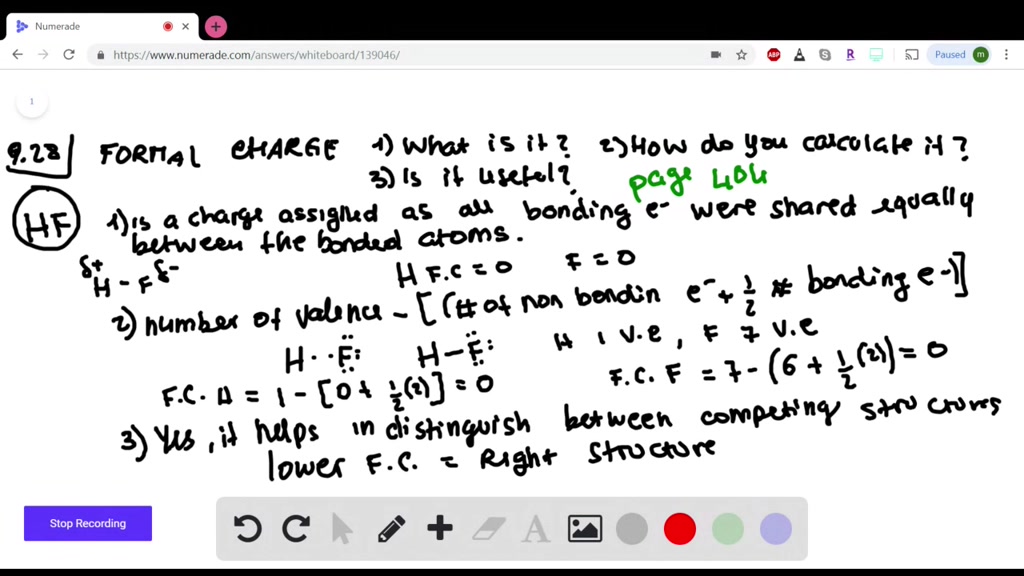 Numerade
https://www.numerade.com/answers/whiteboard/139046/
ABP
R
Paused
m
1
9.28 FORMAL CHARGE 1) What is it? 2) How do you calculate it?
3) Is it useful? page 404
HF 1) is a charge assigned as all bonding e- were shared equally
between the bonded atoms.
δ+ δ-
H - F
H F.C = 0 F = 0
2) number of valence - [(# of non bondin e- + 1/2 * bonding e-)]
H ·· F: H - F: H 1 v.e, F 7 v.e
F.C. H = 1 - [0 + 1/2 (2)] = 0 F.C. F = 7 - (6 + 1/2 (2)) = 0
3) Yes, it helps in distinguish between competing structures
lower F.C. = Right structure
Stop Recording
A